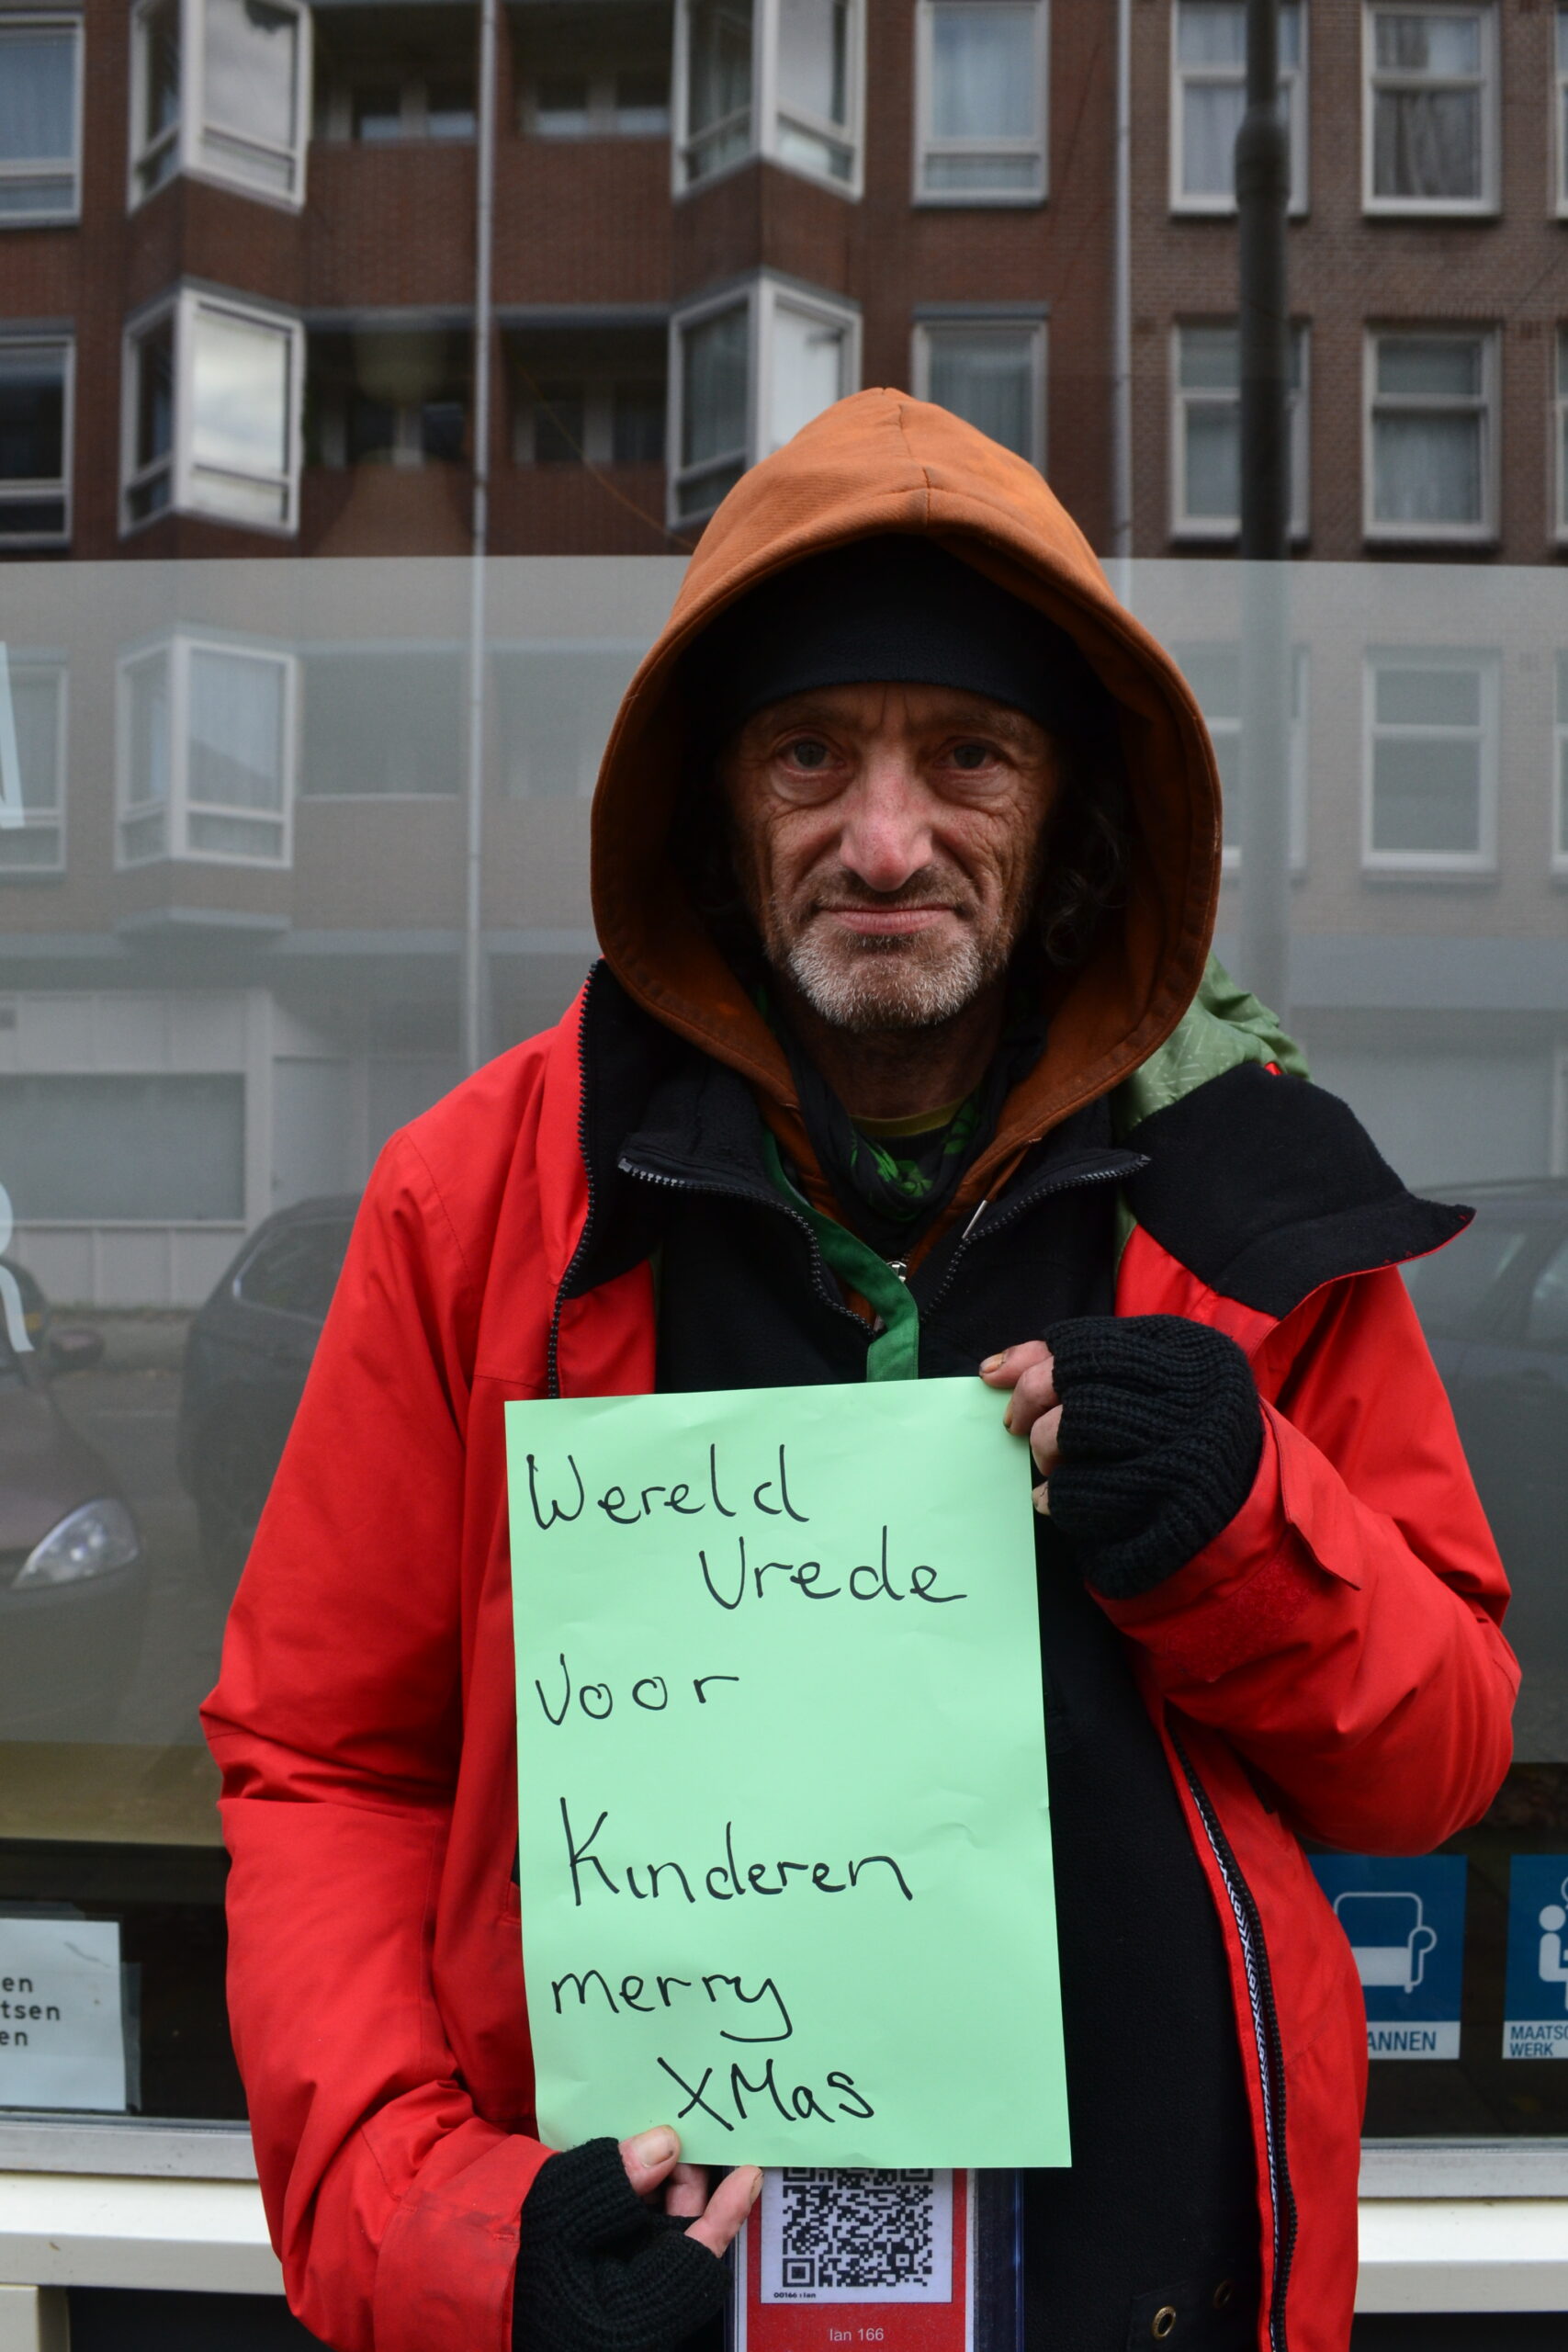 Wereld
Vrede
Voor
Kinderen
merry
XMas
en
tsen
en
ANNEN
MAATSC
WERK
00166 : Ian
Ian 166